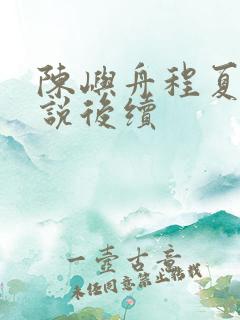 陳嶼舟程夏
說後續
一壺古意
未经同意禁止搭载